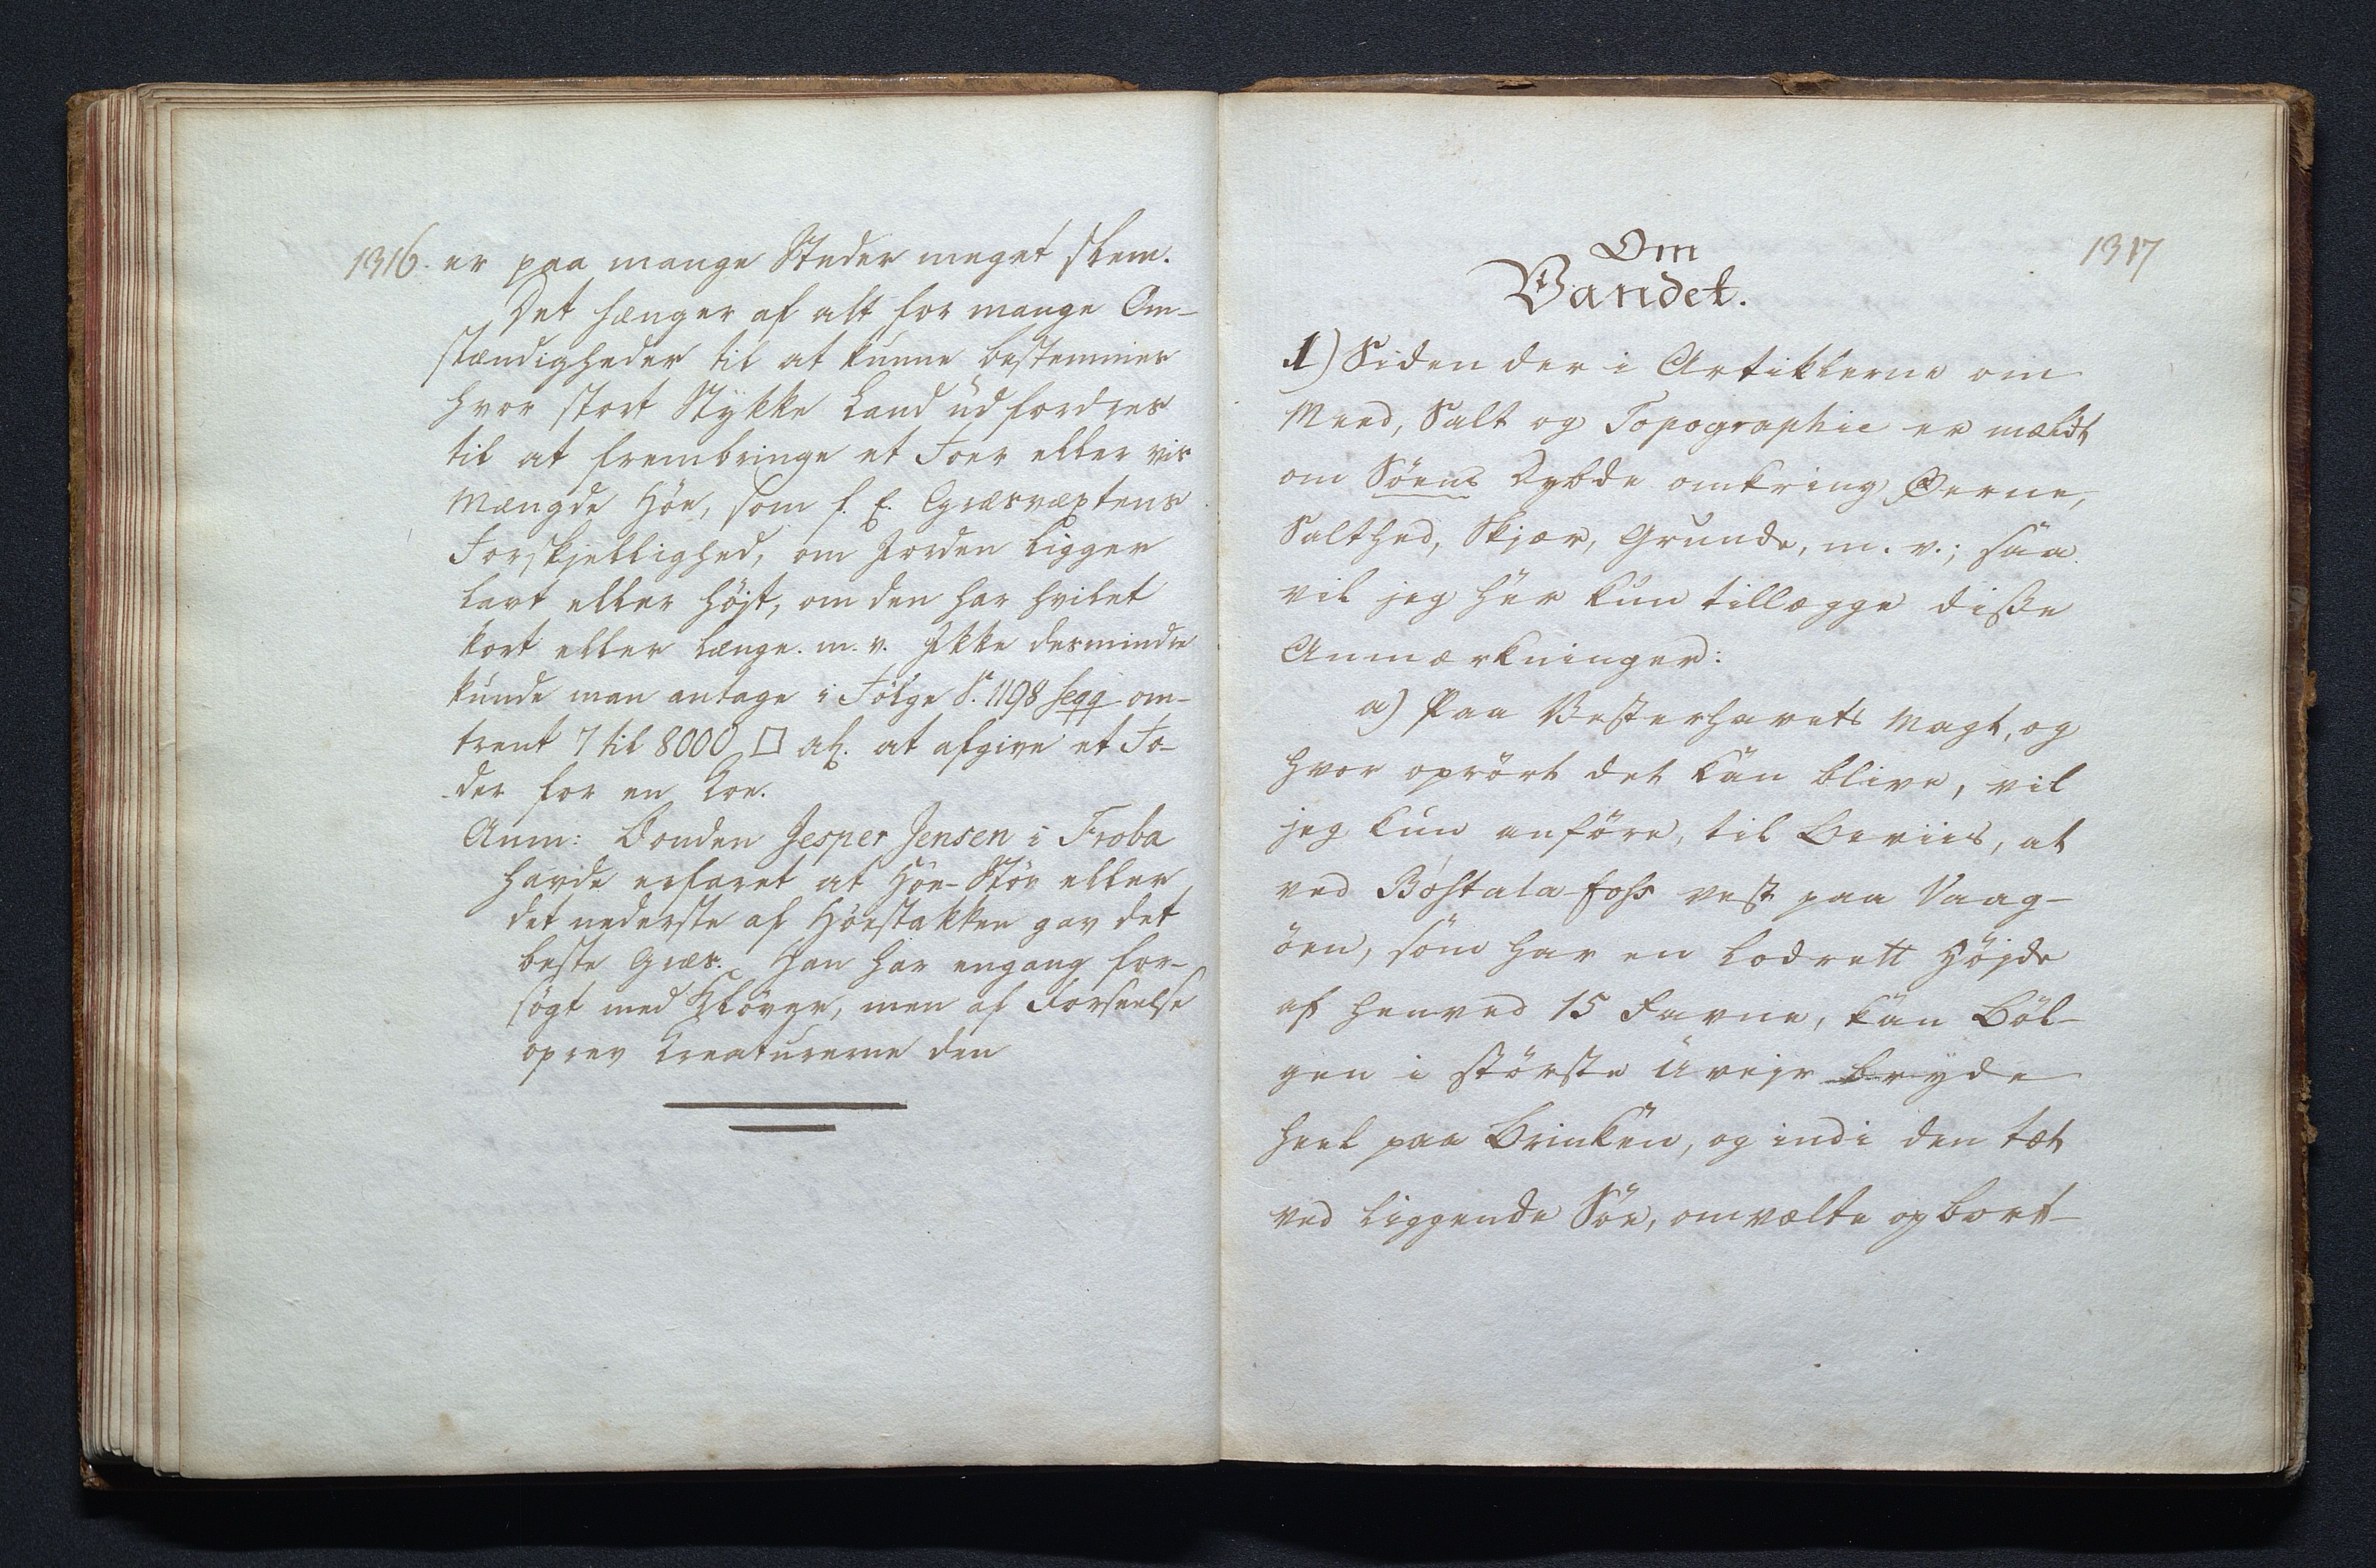 1316. er paa mange Steder meget slem.
Det hænger af alt for mange Om-
stændigheder til at kunne bestemmes
hvor stort Stykke Land udfordres
til at frembringe et Foer eller vis
Mængde Höe, som f. E. Græsvæxtens
Forskjellighed, om Jorden ligger
lavt eller höjt, om den har hvilet
kort eller længe. m. v. Ikke desmindre
kunde man antage i Fölge S. 1198 seqq om-
trent 7 til 8000 □ al. at afgive et Fo-
der for en Koe.
Anm: Bonden Jesper Jensen i Froba
havde erfaret at Höe-Stöv eller
det nederste af Höestakken gav det
beste Græs. Han har engang for-
sögt med Klöver, men af Forseelse
oprev Kreaturerne den
1317
Om
Vandet.
1) Siden der i Artiklerne om
Meed, Salt og Topographie er mældt
om Söens Dybde omkring Öerne,
Salthed, Skjær, Grunde, m. v.; saa
vil jeg her kun tillægge disse
Anmærkninger:
a) Paa Vesterhavets Magt, og
hvor oprört det kan blive, vil
jeg kun anföre, til Beviis, at
ved Böstala-foss vest paa Vaag-
öen, som har en lodrett Höjde
af henved 15 Favne, kan Böl-
gen i störste Uvejr bryde
heel paa Brinken, og indi den tæt
ved liggende Söe, omvælte og bort-